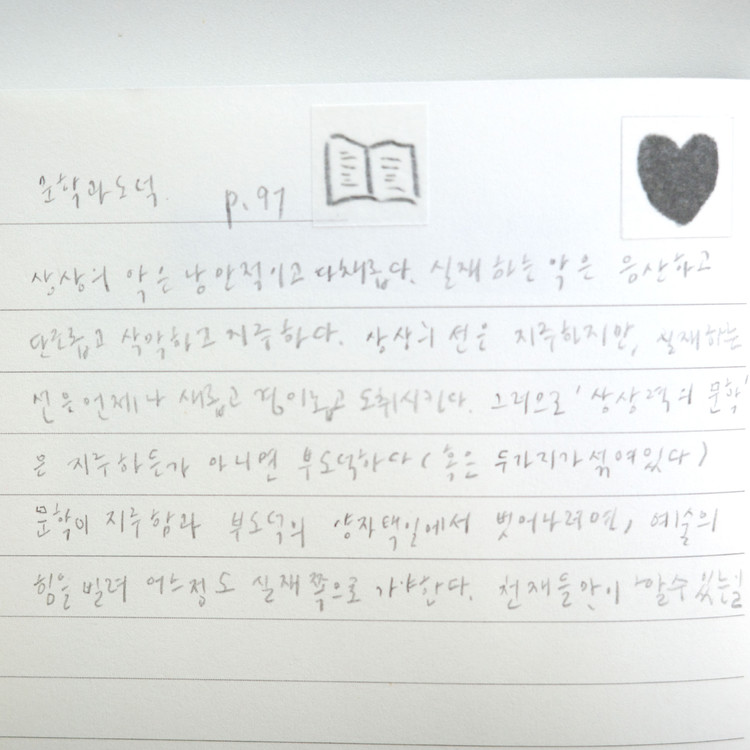 문학과 도덕. p.97
상상의 악은 낭만적이고 다채롭다. 실재하는 악은 음산하고
단조롭고 삭막하고 지루하다. 상상의 선은 지루하지만, 실재하는
선은 언제나 새롭고 경이롭고 도취시킨다. 그러므로 '상상력의 문학'
은 지루하든가 아니면 부도덕하다 (혹은 두가지가 섞여있다)
문학이 지루함과 부도덕의 양자택일에서 벗어나려면, 예술의
힘을 빌려 어느정도 실재쪽으로 가야한다. 천재들만이 할 수 있는 일